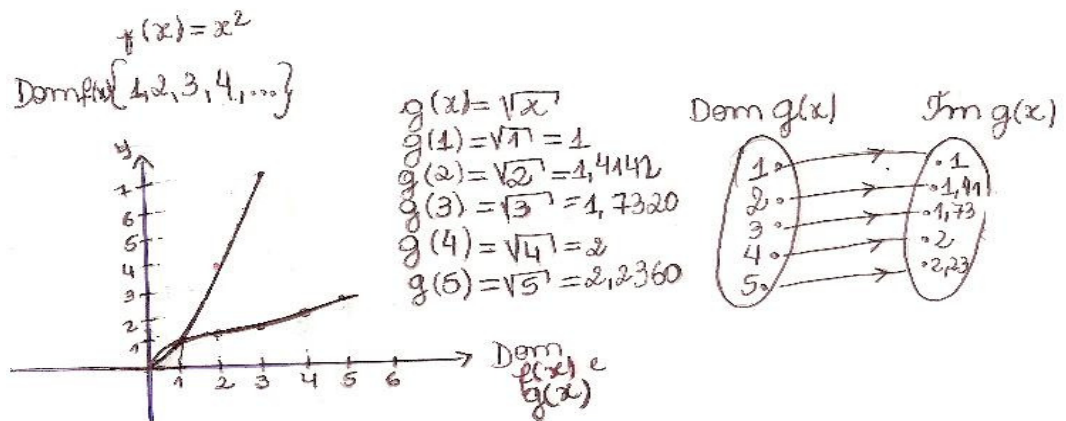 f(x) = x²
Dom f(x) {1, 2, 3, 4, ...}
y
7
6
5
4
3
2
1
1 2 3 4 5 6
Dom
f(x) e
g(x)
g(x) = √x
g(1) = √1 = 1
g(2) = √2 = 1,4142
g(3) = √3 = 1,7320
g(4) = √4 = 2
g(5) = √5 = 2,2360
Dom g(x)
1
2
3
4
5
Im g(x)
1
1,41
1,73
2
2,23